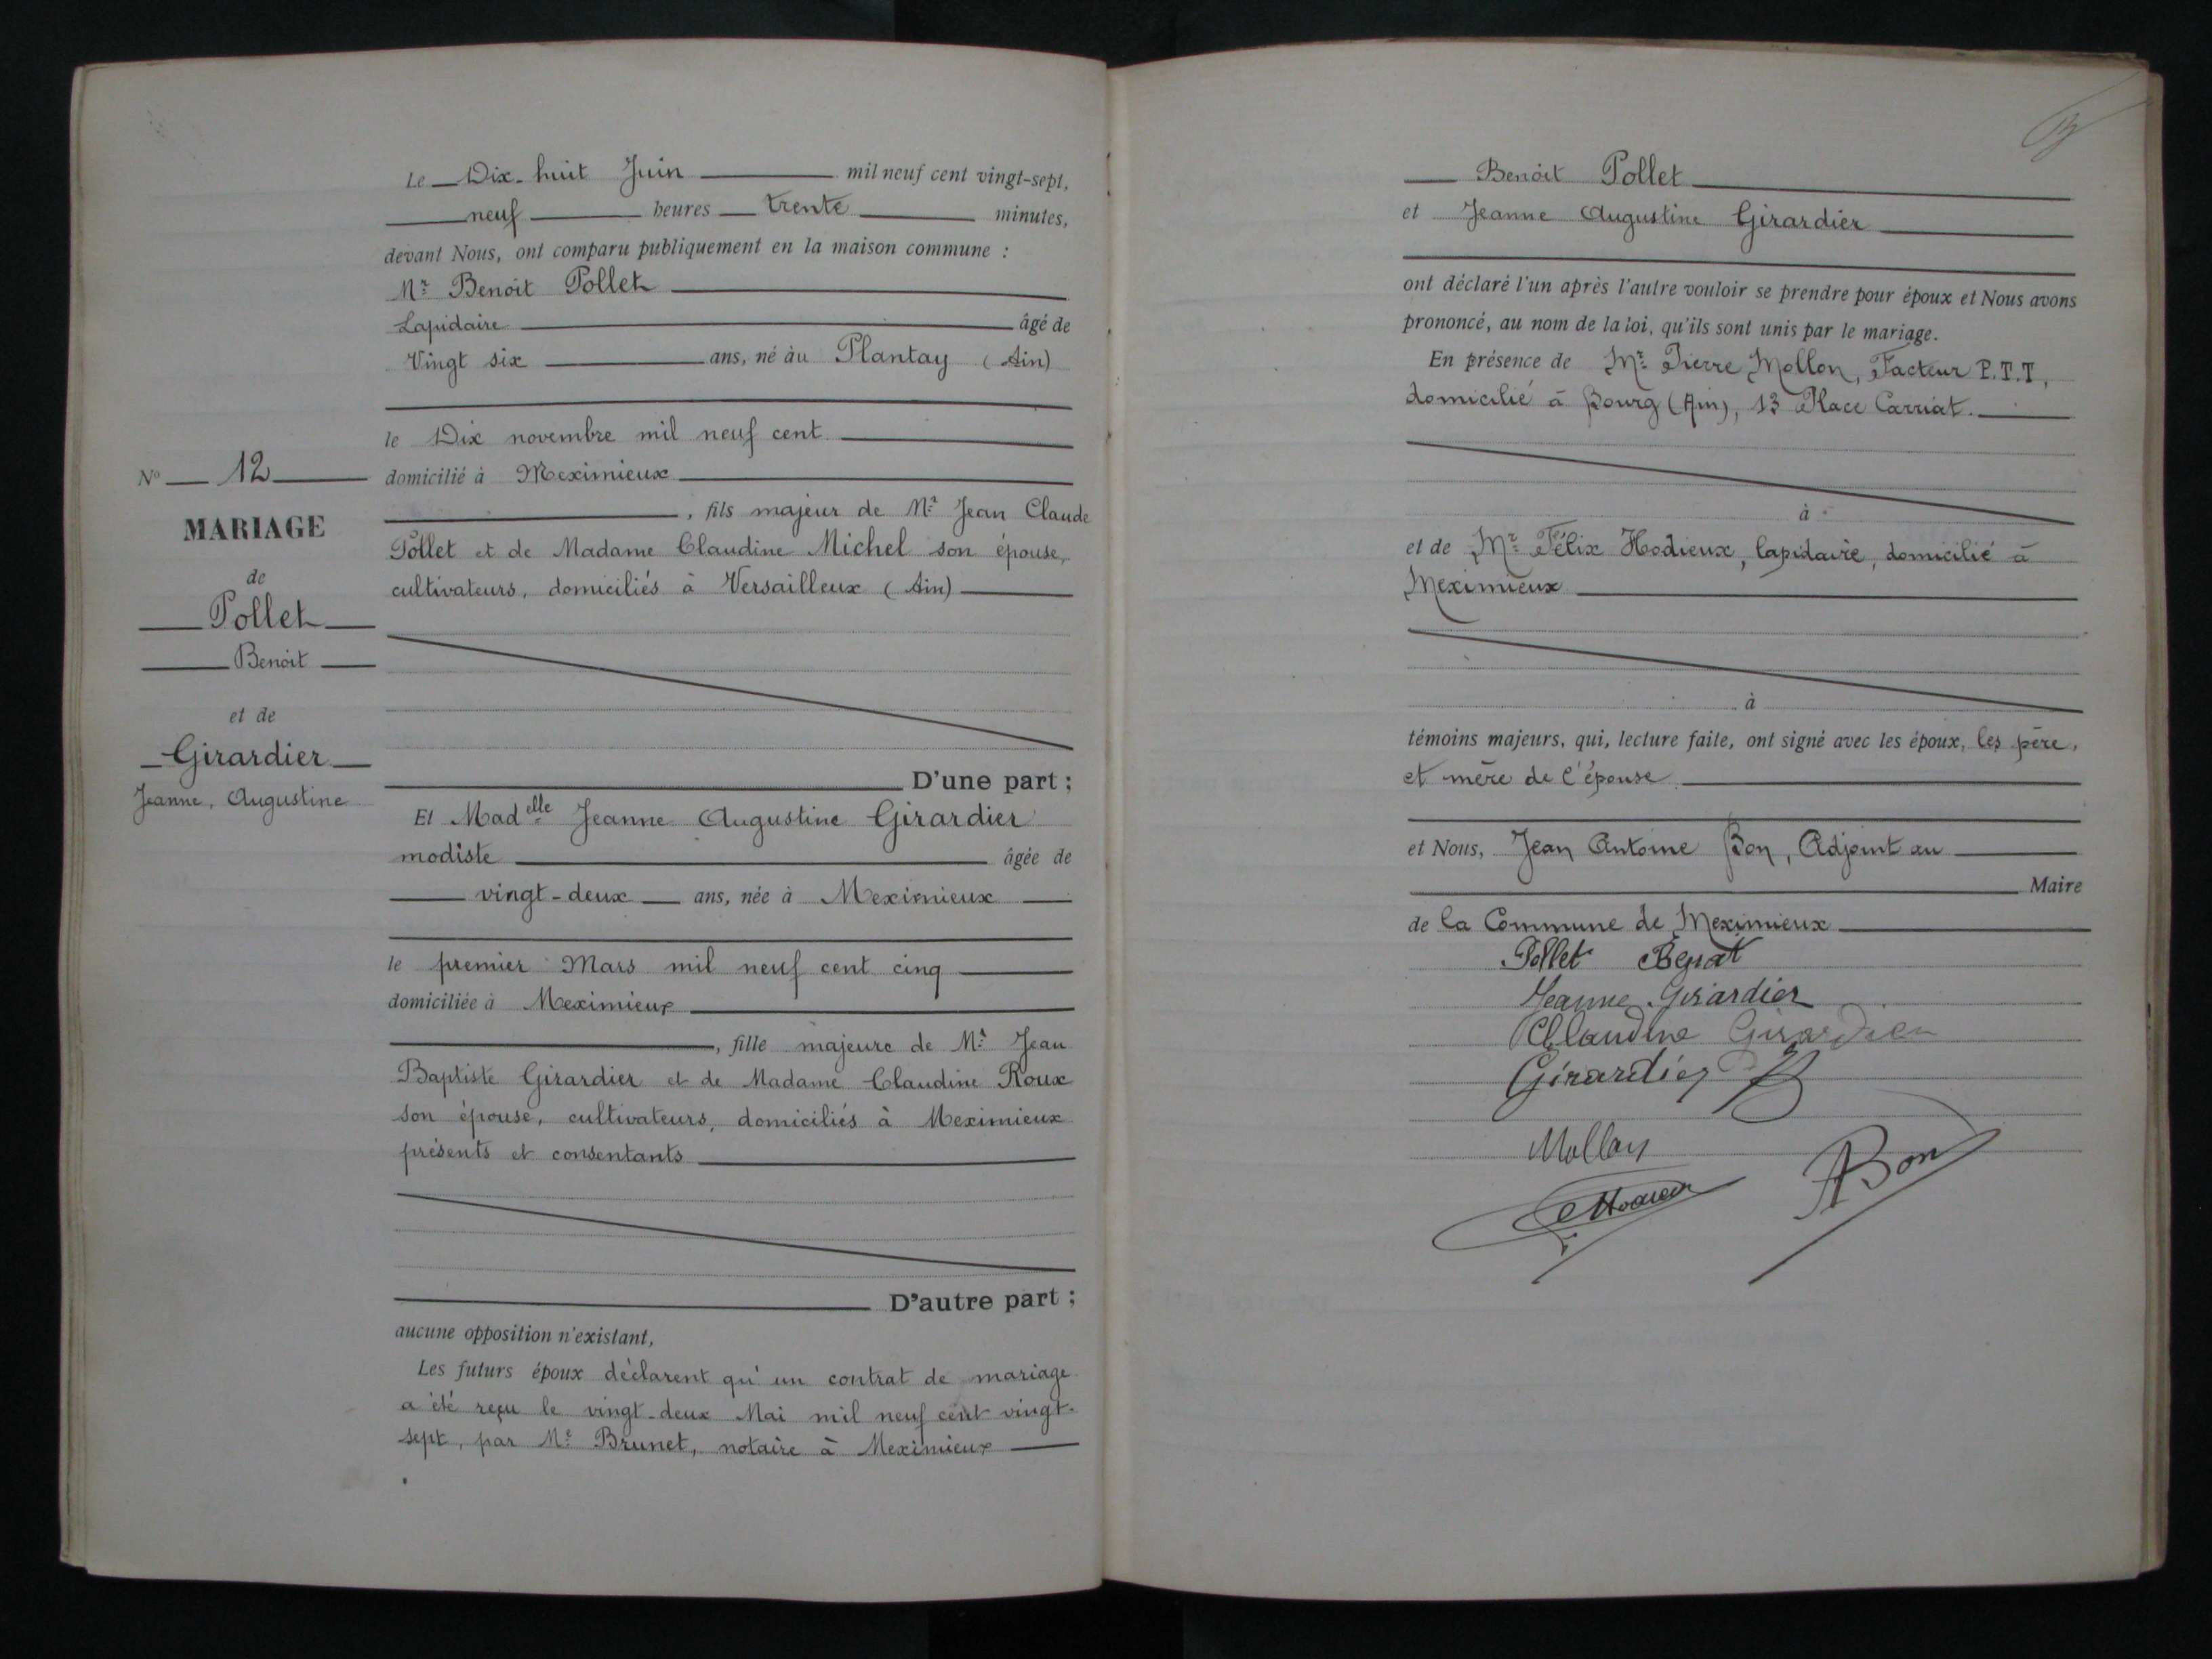 Le Dix-huit Juin mil neuf cent vingt-sept,
neuf heures trente minutes,
devant Nous, ont comparu publiquement en la maison commune :
Mr Benoit Pollet
Lapidaire âgé de
Vingt six ans, né au Plantay (Ain)
le Dix novembre mil neuf cent
domicilié à Meximieux
, fils majeur de Mr Jean Claude
Pollet et de Madame Claudine Michel son épouse,
cultivateurs, domiciliés à Versailleux (Ain)
D'une part ;
Et Madelle Jeanne Augustine Girardier
modiste âgée de
vingt-deux ans, née à Meximieux
le premier Mars mil neuf cent cinq
domiciliée à Meximieux
, fille majeure de Mr Jean
Baptiste Girardier et de Madame Claudine Roux
son épouse, cultivateurs, domiciliés à Meximieux
présents et consentants
D'autre part ;
aucune opposition n'existant,
Les futurs époux déclarent qu'un contrat de mariage
a été reçu le vingt-deux Mai mil neuf cent vingt-
sept, par Me Brunet, notaire à Meximieux
No 12
MARIAGE
de
Pollet
Benoit
et de
Girardier
Jeanne, Augustine
Benoit Pollet
et Jeanne Augustine Girardier
ont déclaré l'un après l'autre vouloir se prendre pour époux et Nous avons
prononcé, au nom de la loi, qu'ils sont unis par le mariage.
En présence de Mr Pierre Mollon, Facteur P.T.T,
domicilié à Bourg (Ain), 13 Place Carriat.
à
et de Mr Félix Hodieux, lapidaire, domicilié à
Meximieux
à
témoins majeurs, qui, lecture faite, ont signé avec les époux, les père,
et mère de l'épouse
et Nous, Jean Antoine Bon, Adjoint au
Maire
de la Commune de Meximieux
Pollet Benoit
Jeanne Girardier
Claudine Girardier
Girardier
Mollon
ABon